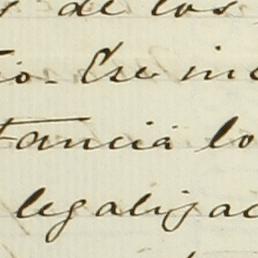 y de los
io. Ese in
tancia lo
legalizac